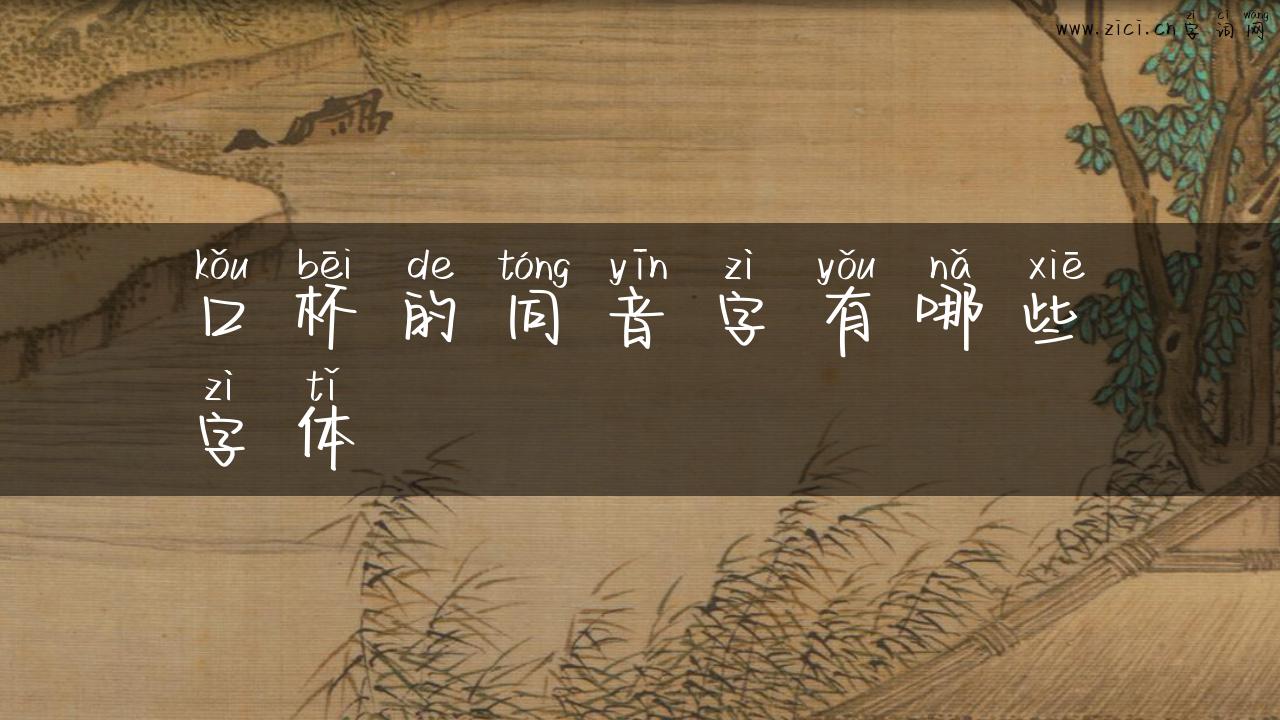 zì cí wǎng
www.zici.cn字词网
kǒu bēi de tóng yīn zì yǒu nǎ xiē
口杯的同音字有哪些
zì tǐ
字体